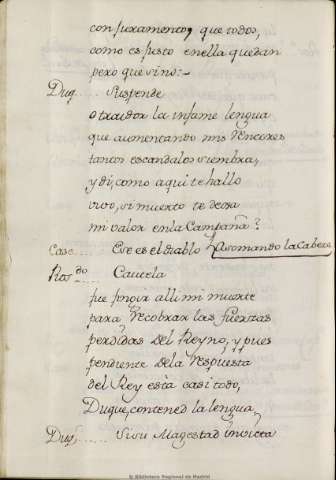 con juramento, que todos,
como es justo en ella quedan
pero que sino:-
Duq..... Suspende
o traidor la infame lengua
que aumentando mis Rencores
tantos escandalos siembra,
y di, como aqui te hallo
vivo, si muerto te dexa
mi valor en la Campaña?
Case.... Ese es el diablo Asomando la Cabeza
Ros.do.... Cautela
fue fingir alli mi muerte
para Recobrar las fuerzas
perdidas del Reyno, y pues
pendiente de la Respuesta
del Rey esta casi todo,
Duque, contened la lengua,
Duq...... Si su Magestad invicta
© Biblioteca Regional de Madrid